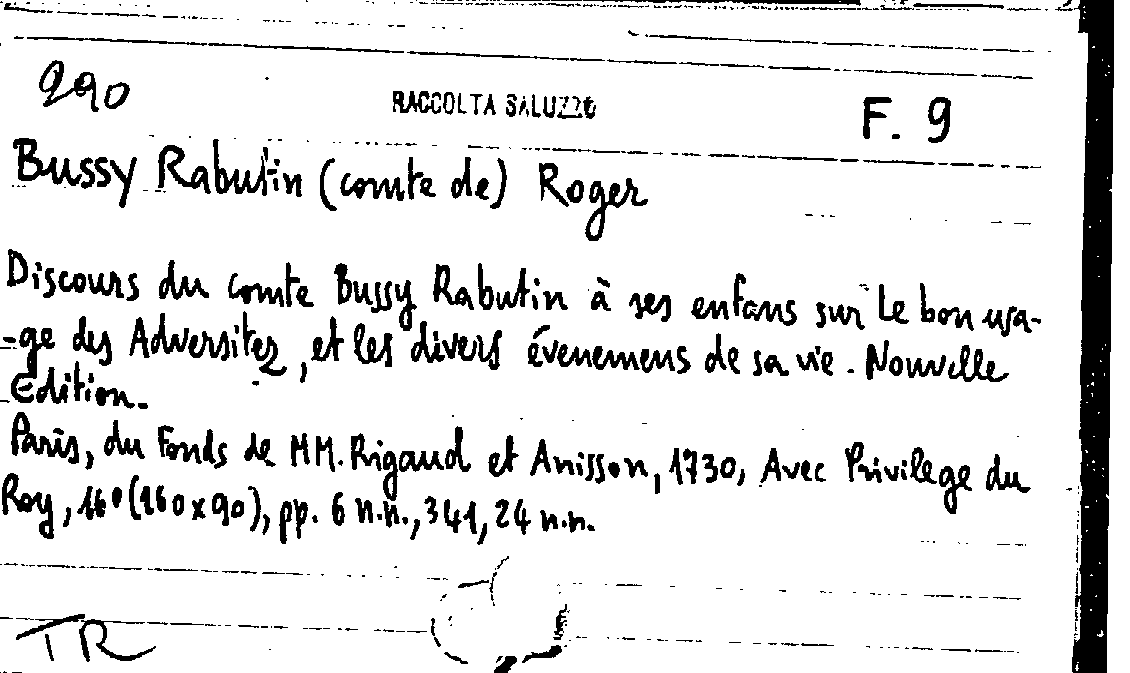 290 RACCOLTA SALUZZO F. 9
Bussy Rabutin (comte de) Roger
Discours du comte Bussy Rabutin à ses enfans sur le bon usa-
-ge des Adversitez, et les divers évenemens de sa vie. Nouvelle
Edition.
Paris, du Fonds de MM. Rigaud et Anisson, 1730, Avec Privilege du
Roy, 16° (160x90), pp. 6 n.n., 341, 24 n.n.
TR